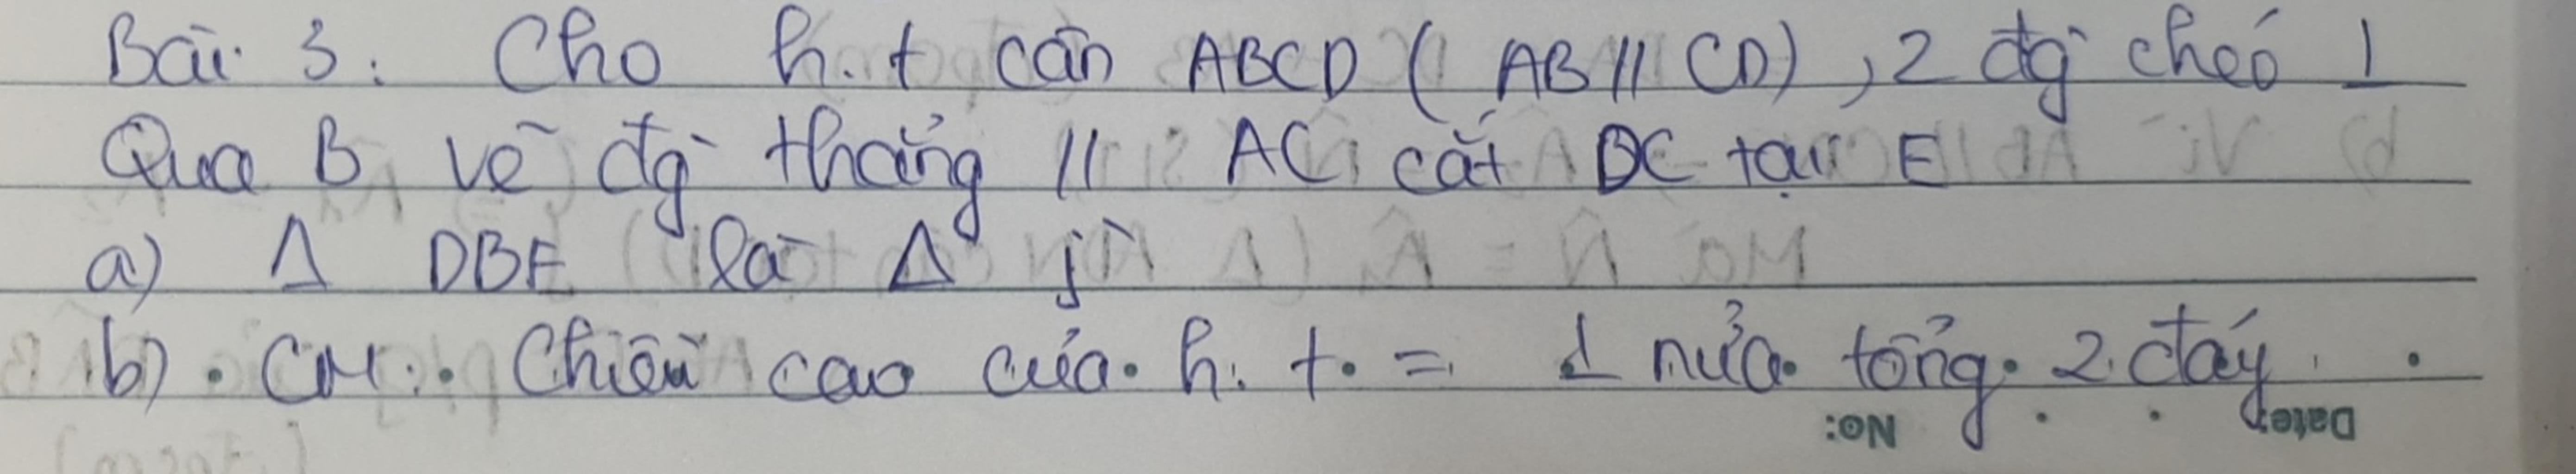 Bài 3: Cho h.t cân ABCD ( AB // CD ) , 2 đg chéo ⊥
Qua B vẽ đg thẳng // AC cắt DC tại E
a) Δ DBE là Δ jì
b) . CM . . Chiều cao của . h. t. = . 1 nửa . tổng . 2 . đáy . .
No: Date: